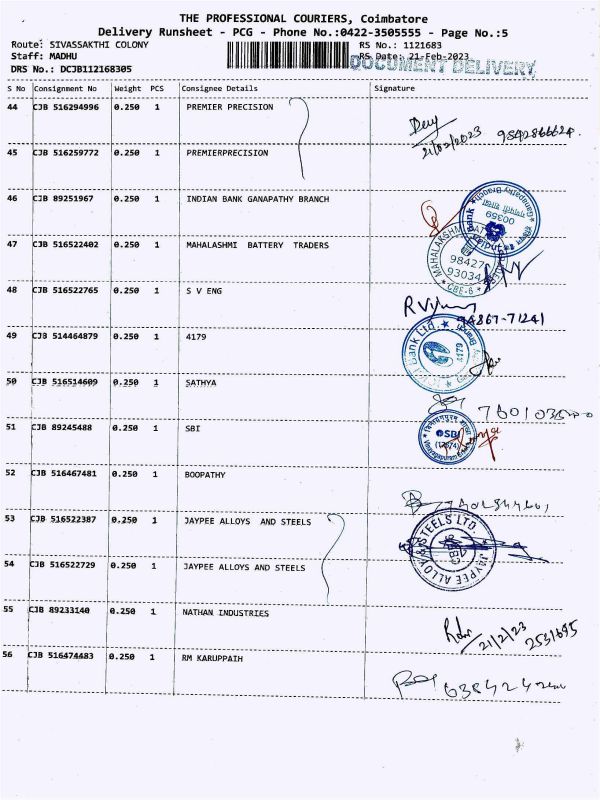 THE PROFESSIONAL COURIERS, Coimbatore
Delivery Runsheet - PCG - Phone No.:0422-3505555 - Page No.:5
Route: SIVASSAKTHI COLONY RS No.: 1121683
Staff: MADHU RS Date: 21-Feb-2023
DOCUMENT DELIVERY
DRS No.: DCJB112168305
S No Consignment No Weight PCS Consignee Details Signature
44 CJB 516294996 0.250 1 PREMIER PRECISION
21/02/2023
45 CJB 516259772 0.250 1 PREMIERPRECISION
46 CJB 89251967 0.250 1 INDIAN BANK GANAPATHY BRANCH
00359
47 CJB 516522402 0.250 1 MAHALASHMI BATTERY TRADERS
98427
93034
CBE-6
48 CJB 516522765 0.250 1 S V ENG
94867-71241
49 CJB 514464879 0.250 1 4179
Bank Ltd.
4179
50 CJB 516514609 0.250 1 SATHYA
51 CJB 89245488 0.250 1 SBI
SBI
52 CJB 516467481 0.250 1 BOOPATHY
53 CJB 516522387 0.250 1 JAYPEE ALLOYS AND STEELS
JAYPEE ALLOY & STEELS LTD.
54 CJB 516522729 0.250 1 JAYPEE ALLOYS AND STEELS
55 CJB 89233140 0.250 1 NATHAN INDUSTRIES
21/2/23
56 CJB 516474483 0.250 1 RM KARUPPAIH